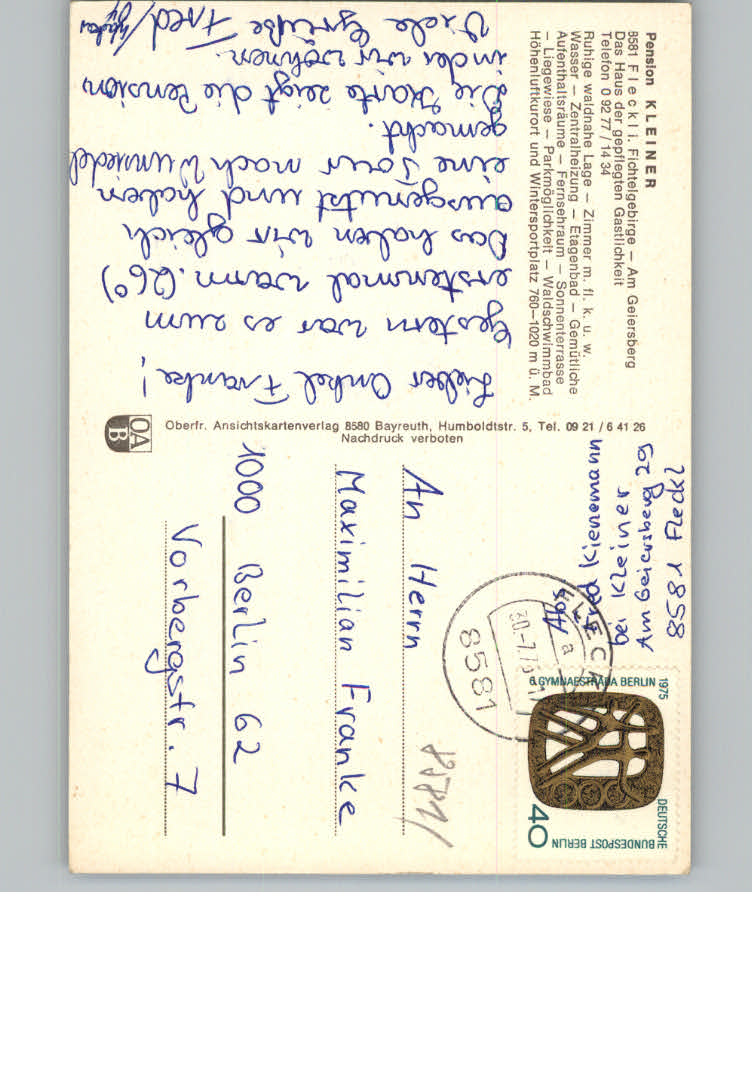 Pension KLEINER
8581 Fleckl i. Fichtelgebirge – Am Geiersberg
Das Haus der gepflegten Gastlichkeit
Telefon 0 92 77 / 14 34
Ruhige waldnahe Lage – Zimmer m. fl. k. u. w.
Wasser – Zentralheizung – Etagenbad – Gemütliche
Aufenthaltsräume – Fernsehraum – Sonnenterrasse
– Liegewiese – Parkmöglichkeit – Waldschwimmbad
Höhenluftkurort und Wintersportplatz 760–1020 m ü. M.
Lieber Onkel Franke!
Gestern war es zum
erstenmal warm. (26°)
Das haben wir gleich
ausgenutzt und haben
eine Tour nach Wunsiedel
gemacht.
Die Karte zeigt die Pension
in der wir wohnen.
Viele Grüße Fred/
Oberfr. Ansichtskartenverlag 8580 Bayreuth, Humboldtstr. 5, Tel. 09 21 / 6 41 26
Nachdruck verboten
OA
B
Abs
Fred Kienemann
bei Kleiner
Am Geiersberg 29
8581 Fleckl
8581 FLECKL
a
30.-7.75
6. GYMNAESTRADA BERLIN 1975
DEUTSCHE
BUNDESPOST BERLIN
40
An Herrn
Maximilian Franke
1000 Berlin 62
Vorbergstr. 7